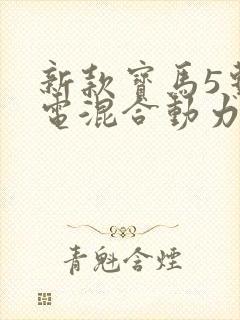 新款寶馬5
電混合動力
青魁含煙